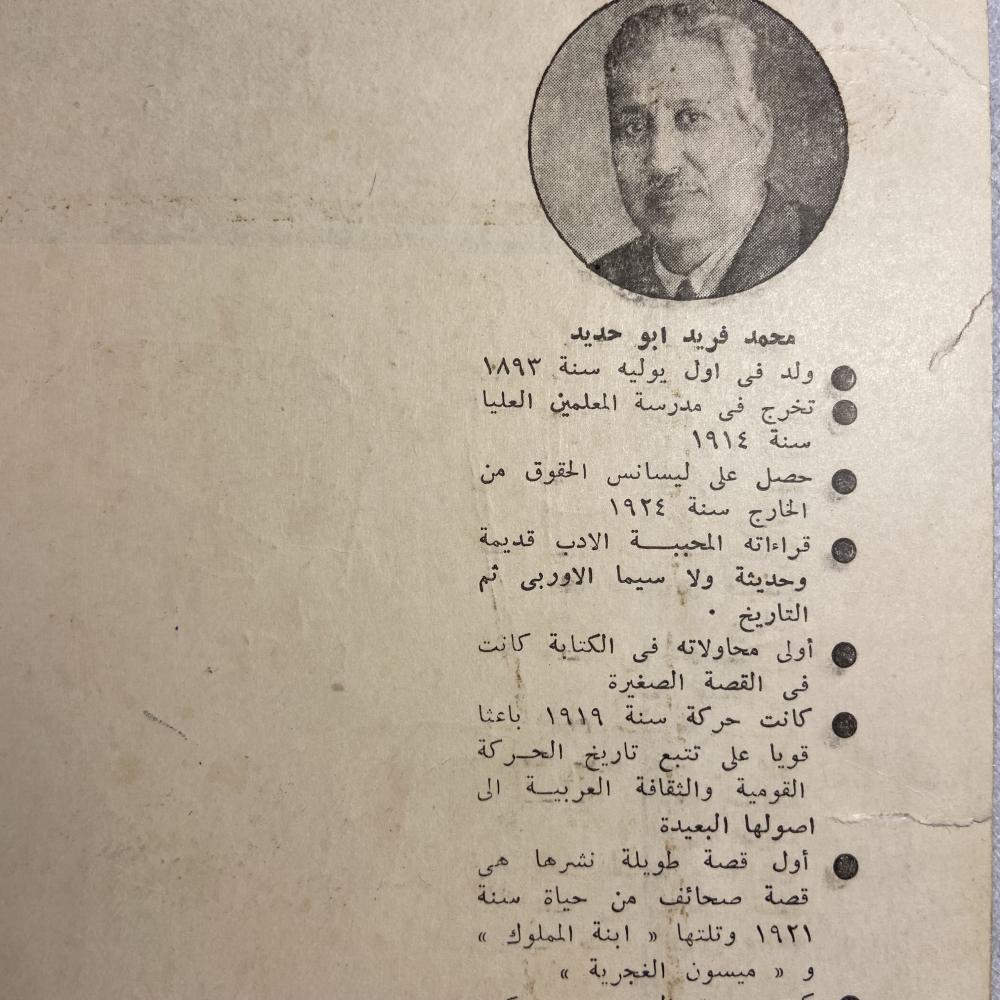 محمد فريد ابو حديد
● ولد فى اول يوليه سنة ١٨٩٣
● تخرج فى مدرسة المعلمين العليا
سنة ١٩١٤
● حصل على ليسانس الحقوق من
الخارج سنة ١٩٢٤
● قراءاته المحببـــة الادب قديمة
وحديثة ولا سيما الاوربى ثم
التاريخ ٠
● أولى محاولاته فى الكتابة كانت
فى القصة الصغيرة
● كانت حركة سنة ١٩١٩ باعثا
قويا على تتبع تاريخ الحـركة
القومية والثقافة العربيـة الى
اصولها البعيدة
● أول قصة طويلة نشرها هى
قصة صحائف من حياة سنة
١٩٢١ وتلتها « ابنة المملوك »
و « ميسون الغجرية »